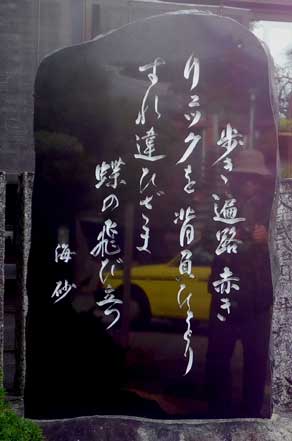 歩き遍路赤き
リュックを背負ひをり
すれ違ひざま
蝶の飛び立つ
海砂